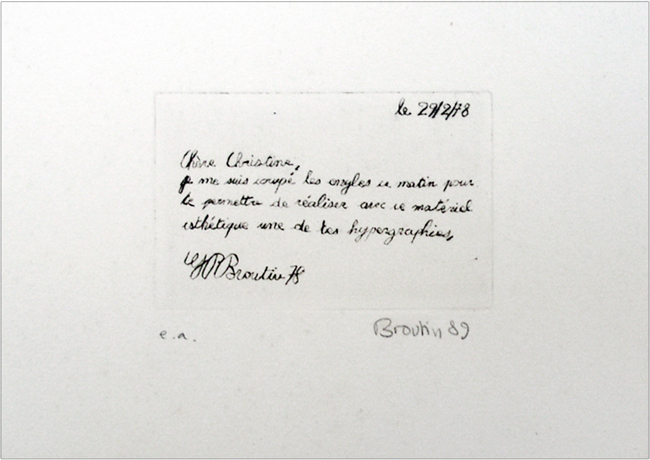 le 29/2/78
Chère Christine,
je me suis coupé les ongles ce matin pour
te permettre de réaliser avec ce matériel
esthétique une de tes hypergraphies,
Broutin 78
e.a.
Broutin 89